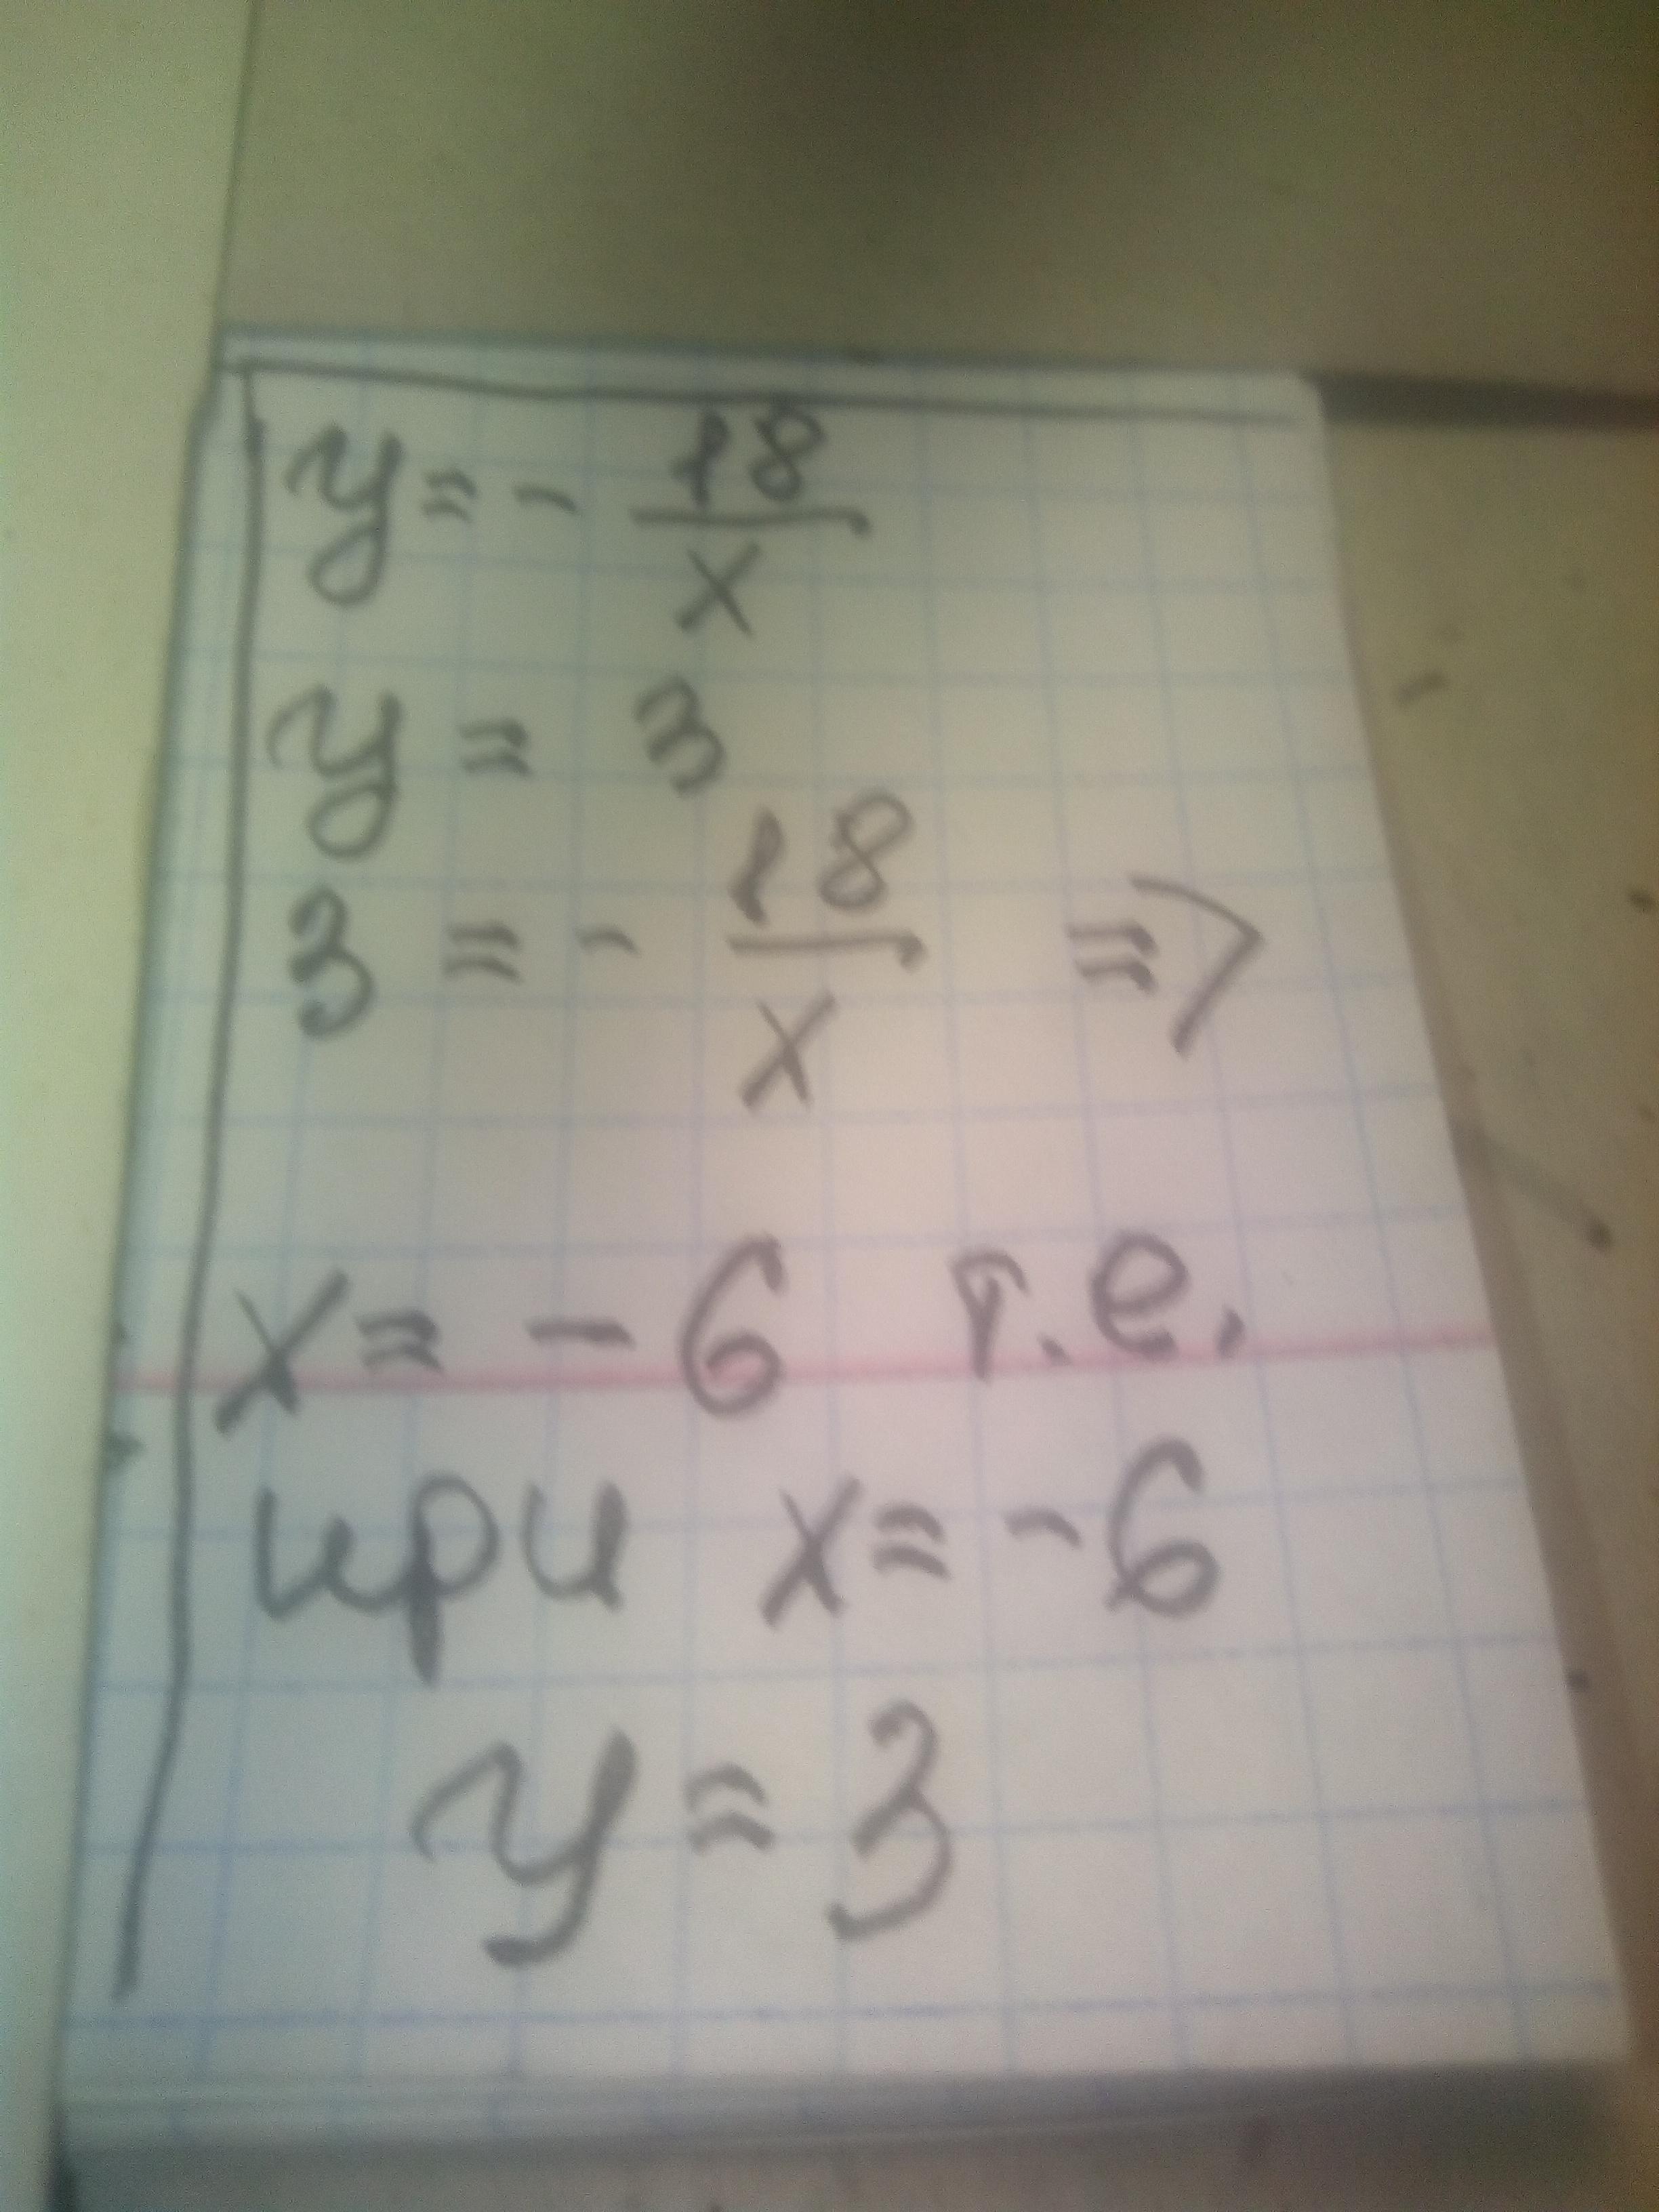 y = - 18/x
y = 3
3 = - 18/x =>
x = - 6 т.е.
при x = - 6
y = 3